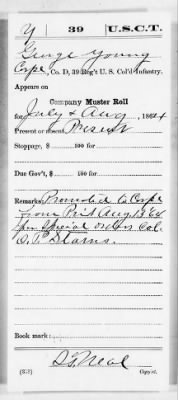 Y 39 U.S.C.T.
George Young
Corpl, Co. D, 39 Reg't U. S. Col'd Infantry.
Appears on
Company Muster Roll
for July & Aug, 1864
Present or absent Present
Stoppage, $ 100 for
Due Gov't, $ 100 for
Remarks: Promoted to Corpl
from Privt Aug 1, 64
per Special orders Col.
O. P. Stearns.
Book mark:
Copyist.